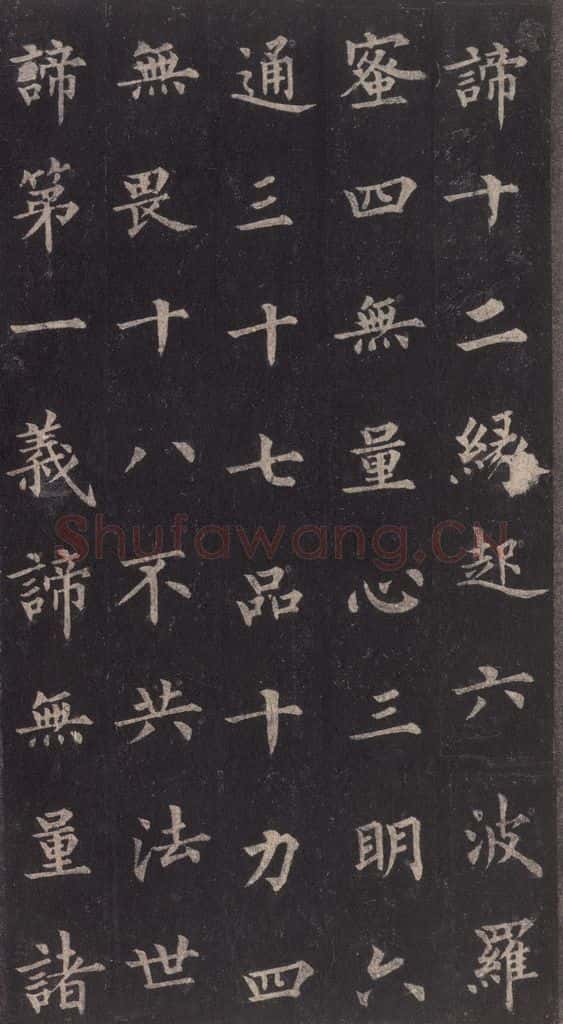 諦十二緣起六波羅
蜜四無量心三明六
通三十七品十力四
無畏十八不共法世
諦第一義諦無量諸
Shufawang.CN